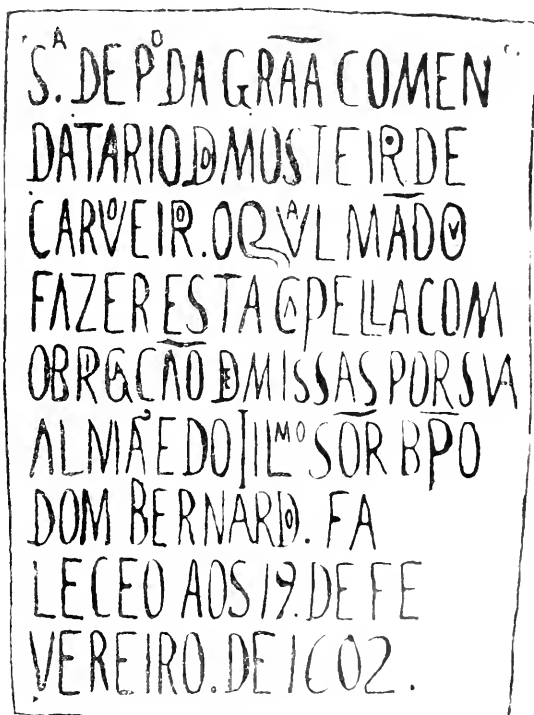 Sᴬ. DE Pº DA GRÃA COMEN
DATARIO DO MOSTEIRº DE
CARVOEIRO. O QVAL MÃDOV
FAZER ESTA CAPELLA COM
OBRGCÃO DE MISSAS POR SVA
ALMA E DO ILLᴹº SÕR BPO
DOM BERNARDO. FA
LECEO AOS 19. DE FE
VEREIRO. DE 1602.